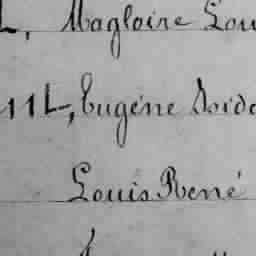 L, Magloire Lou
11L, Eugène
Louis René